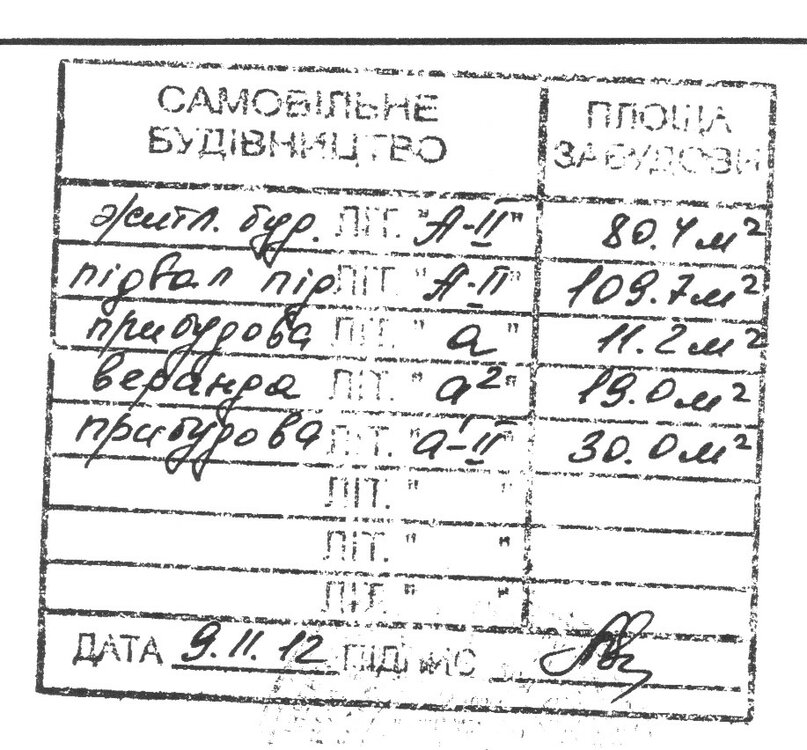 САМОВІЛЬНЕ БУДІВНИЦТВО ПЛОЩА ЗАБУДОВИ
житл. буд. ЛІТ. "А-ІІ" 80.4м²
підвал під ЛІТ. "А-ІІ" 109.7м²
прибудова ЛІТ. "а" 11.2м²
веранда ЛІТ. "а²" 19.0м²
прибудова ЛІТ. "а'-ІІ" 30.0м²
ЛІТ. " "
ЛІТ. " "
ЛІТ. " "
ДАТА 9.11.12 ПІДПИС